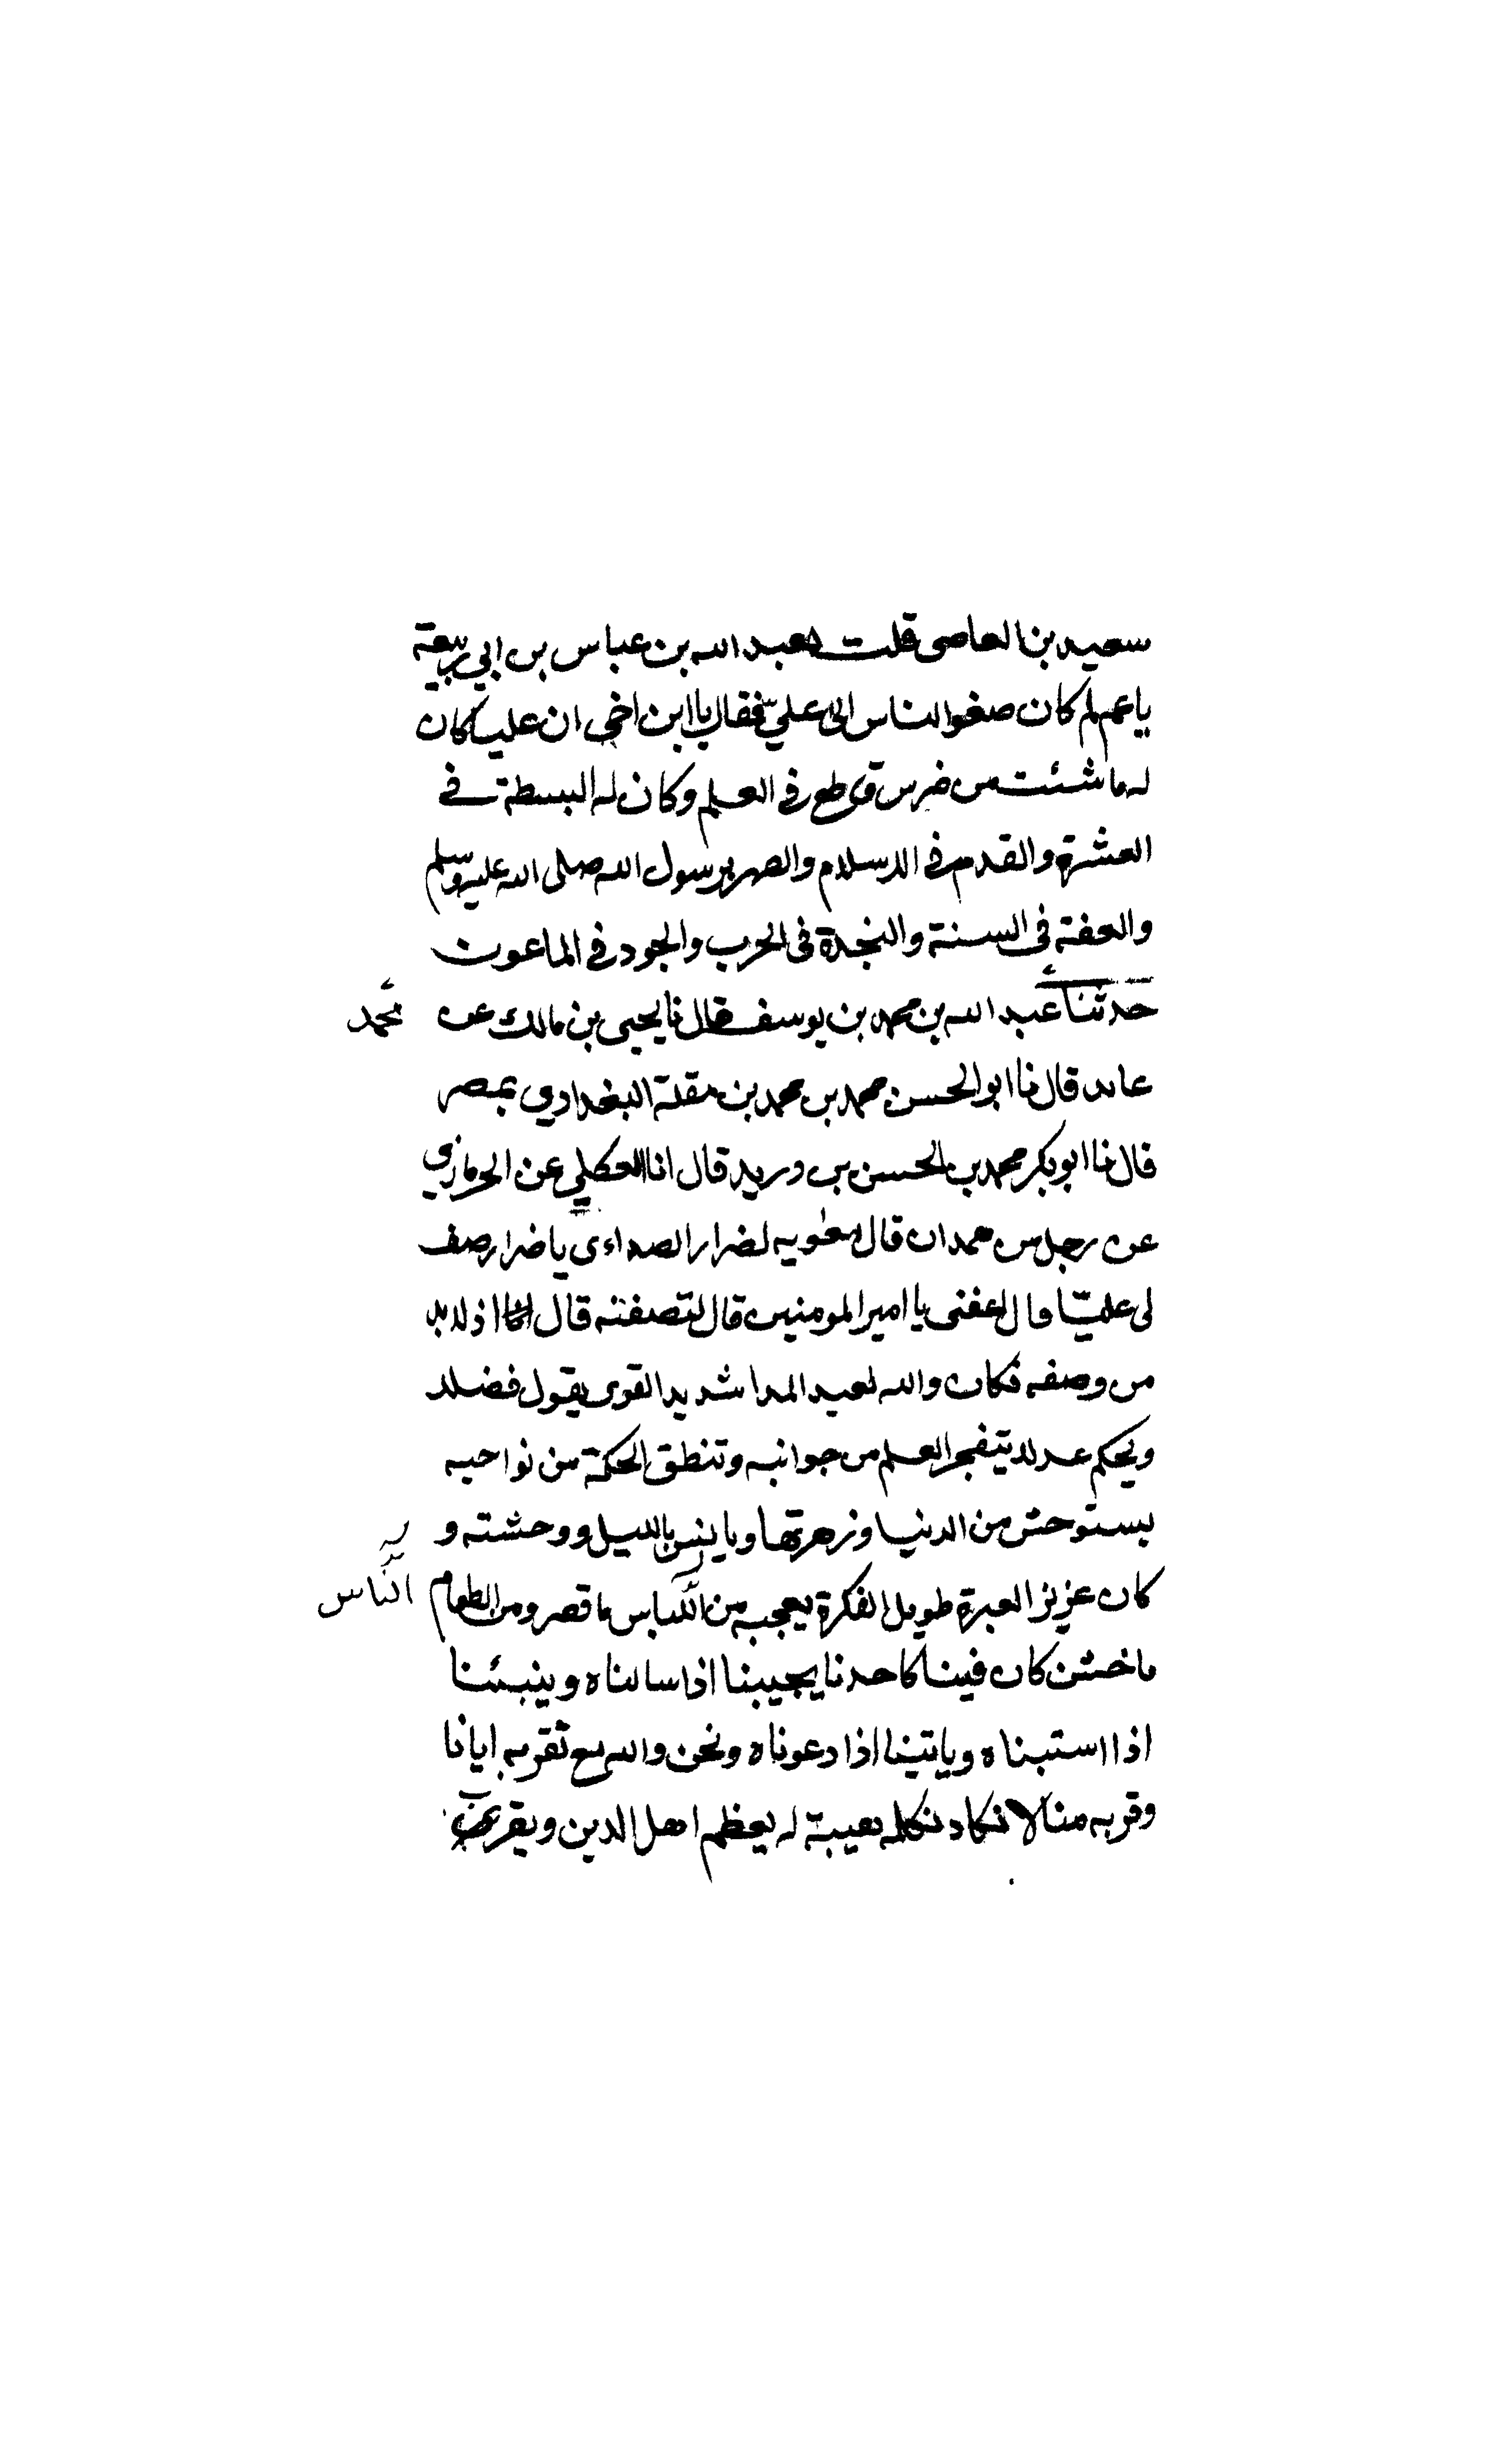 سعيد بن العاصى قلت لعبد الله بن عباس بن ابي ربيعة
ياعم لم كان صغو الناس الى علي فقال يا ابن اخي ان عليا كان
له ما شئت من ضرس قاطع في العلم وكان له البسطة في
العشرة والقدم في الاسلام والصهر برسول الله صلى الله عليه وسلم
والعفة في السنة والنجدة في الحرب والجود في الماعون
حدثنا عبد الله بن محمد بن يوسف قال نا يحيى بن مالك عن
محمد
عابد قال نا ابو الحسن محمد بن محمد بن مقلة البغدادي بمصر
قال نا ابو بكر محمد بن الحسن بن دريد قال انا العكلي عن الحرمازي
عن رجل من همدان قال معوية لضرار الصداءى يا ضرار صف
لى عليا قال اعفنى يا امير المومنين قال لتصفنه قال اما اذ لا بد
من وصفه فكان والله بعيد المدا شديد القوى يقول فضلا
ويحكم عدلا يتفجر العلم من جوانبه وتنطق الحكمة من نواحيه
يستوحش من الدنيا وزهرتها ويانس بالليل ووحشته و
كان عزيز العبرة طويل الفكرة يعجبه من اللباس ما قصر ومن الطعام
الناس
ما خشن كان فينا كاحدنا يجيبنا اذا سالناه وينبئنا
اذا استبناه وياتينا اذا دعوناه ونحن والله مع تقريبه ايانا
وقربه منا لا نكاد نكلمه هيبة له يعظم اهل الدين ويقرب